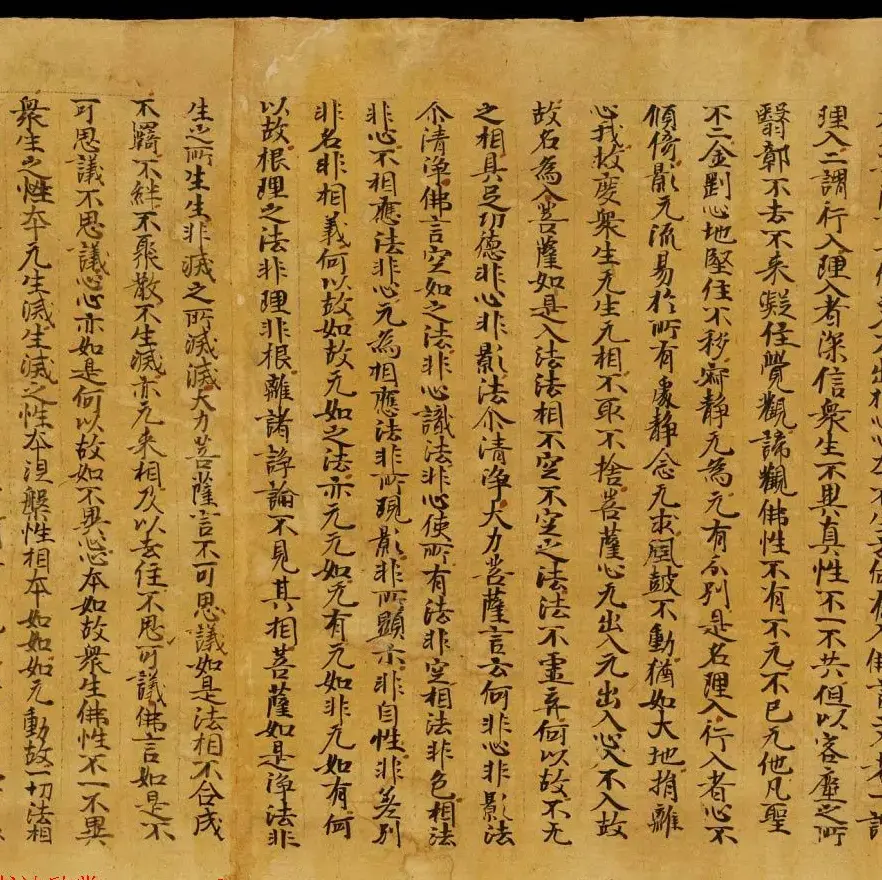 理入二謂行入理入者深信衆生不異真性不一不共但以客塵之所
翳鄣不去不来凝住覺觀諦觀佛性不有不无不己无他凡聖
不二金剛心地堅住不移寂静无為无有分別是名理入行入者心不
傾倚影无流易於所有處静念无求風鼓不動猶如大地捐離
心我救度衆生无生无相不取不捨菩薩心无出入无出入心入不入故
故名為入菩薩如是入法法相不空不空之法法不虛弃何以故不无
之相具足功德非心非影法尒清浄大力菩薩言云何非心非影法
尒清浄佛言空如之法非心識法非心使所有法非空相法非色相法
非心不相應法非心无為相應法非所現影非所顯示非自性非差別
非名非相義何以故如故无如之法亦无无如无有无如非无如有何
以故根理之法非理非根離諸諍論不見其相菩薩如是浄法非
生之所生生非滅之所滅滅大力菩薩言不可思議如是法相不合成
不羇不絆不聚散不生滅亦无来相及以去住不思可議佛言如是不
可思議不思議心心亦如是何以故如不異心本如故衆生佛性不一不異
衆生之性本无生滅生滅之性本涅槃性相本如如如无動故一切法相